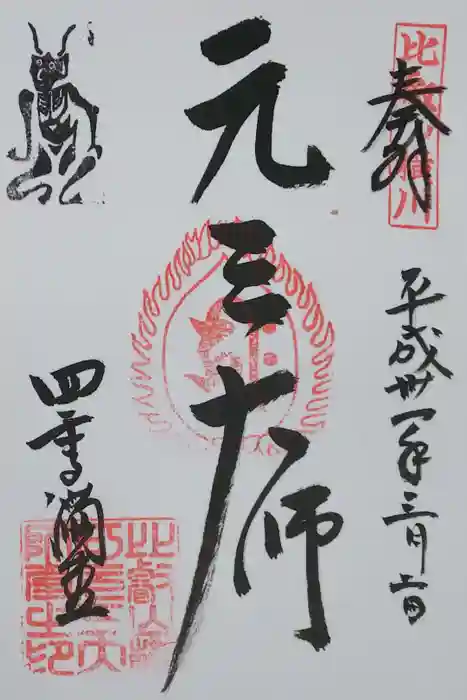 比叡山横川
奉拝
平成卅一年三月
元三大師
四季講堂
比叡山横
川元三大
師堂之印